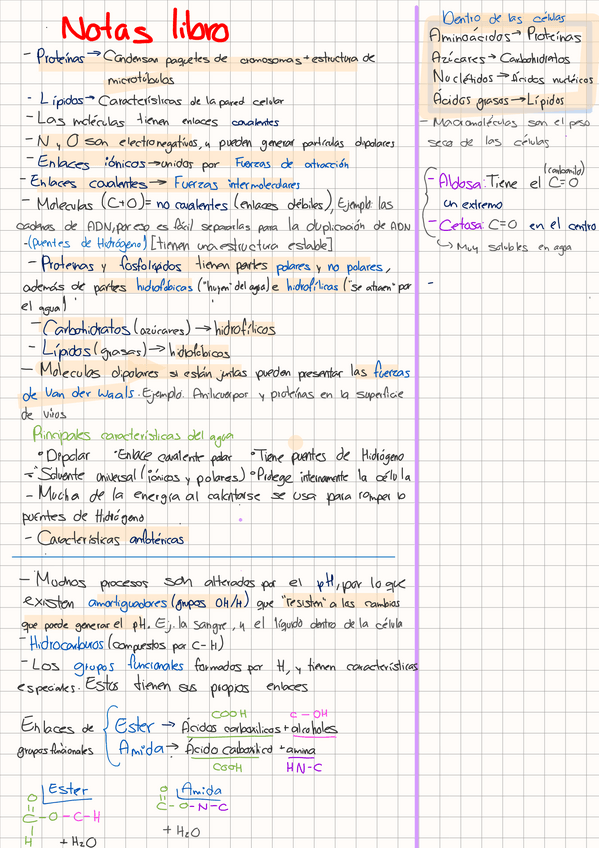 Notas libro
- Proteínas → Condensan paquetes de cromosomas + estructura de
microtúbulos
- Lípidos → Características de la pared celular
- Las moléculas tienen enlaces covalentes
- N y O son electronegativos, y pueden generar partículas dipolares
- Enlaces iónicos → unidos por Fuerzas de atracción
- Enlaces covalentes → Fuerzas intermoleculares
- Moleculas (C+O) = no covalentes (enlaces débiles), Ejemplo: las
cadenas de ADN, por eso es fácil separarlas para la duplicación de ADN
- (puentes de Hidrógeno) [tienen una estructura estable]
- Proteínas y fosfolípidos tienen partes polares y no polares,
además de partes hidrofóbicas ("huyen" del agua) e hidrofílicas ("se atraen" por
el agua)
- Carbohidratos (azúcares) → hidrofílicos
- Lípidos (grasas) → hidrofóbicos
- Moleculas dipolares si están juntas pueden presentar las fuerzas
de Van der Waals. Ejemplo. Anticuerpos y proteínas en la superficie
de virus
Principales características del agua
° Dipolar ° Enlace covalente polar ° Tiene puentes de Hidrógeno
° Solvente universal (iónicos y polares) ° Protege internamente la célula
- Mucha de la energía al calentarse se usa para romper lo
puentes de Hidrógeno
- Características anfotéricas
- Muchos procesos son alterados por el pH, por lo que
existen amortiguadores (grupos OH/H) que "resisten" a los cambios
que puede generar el pH. Ej. la sangre, y el líquido dentro de la célula
- Hidrocarburos (compuestos por C-H)
- Los grupos funcionales formados por H, y tienen características
especiales. Estos tienen sus propios enlaces
COOH C-OH
Enlaces de { Ester → Ácidos carboxílicos + alcoholes
grupos funcionales Amida → Ácido carboxílico + amina
COOH HN-C
Ester Amida
O O
C-O-C-H C-O-N-C
H + H₂O + H₂O
Dentro de las células
Aminoácidos → Proteínas
Azúcares → Carbohidratos
Nucleótidos → Ácidos nucléicos
Ácidos grasos → Lípidos
- Macromoléculas son el peso
seco de las células
(carbonilo)
- Aldosa: Tiene el C=O
un extremo
- Cetosa: C=O en el centro
↳ Muy solubles en agua
-